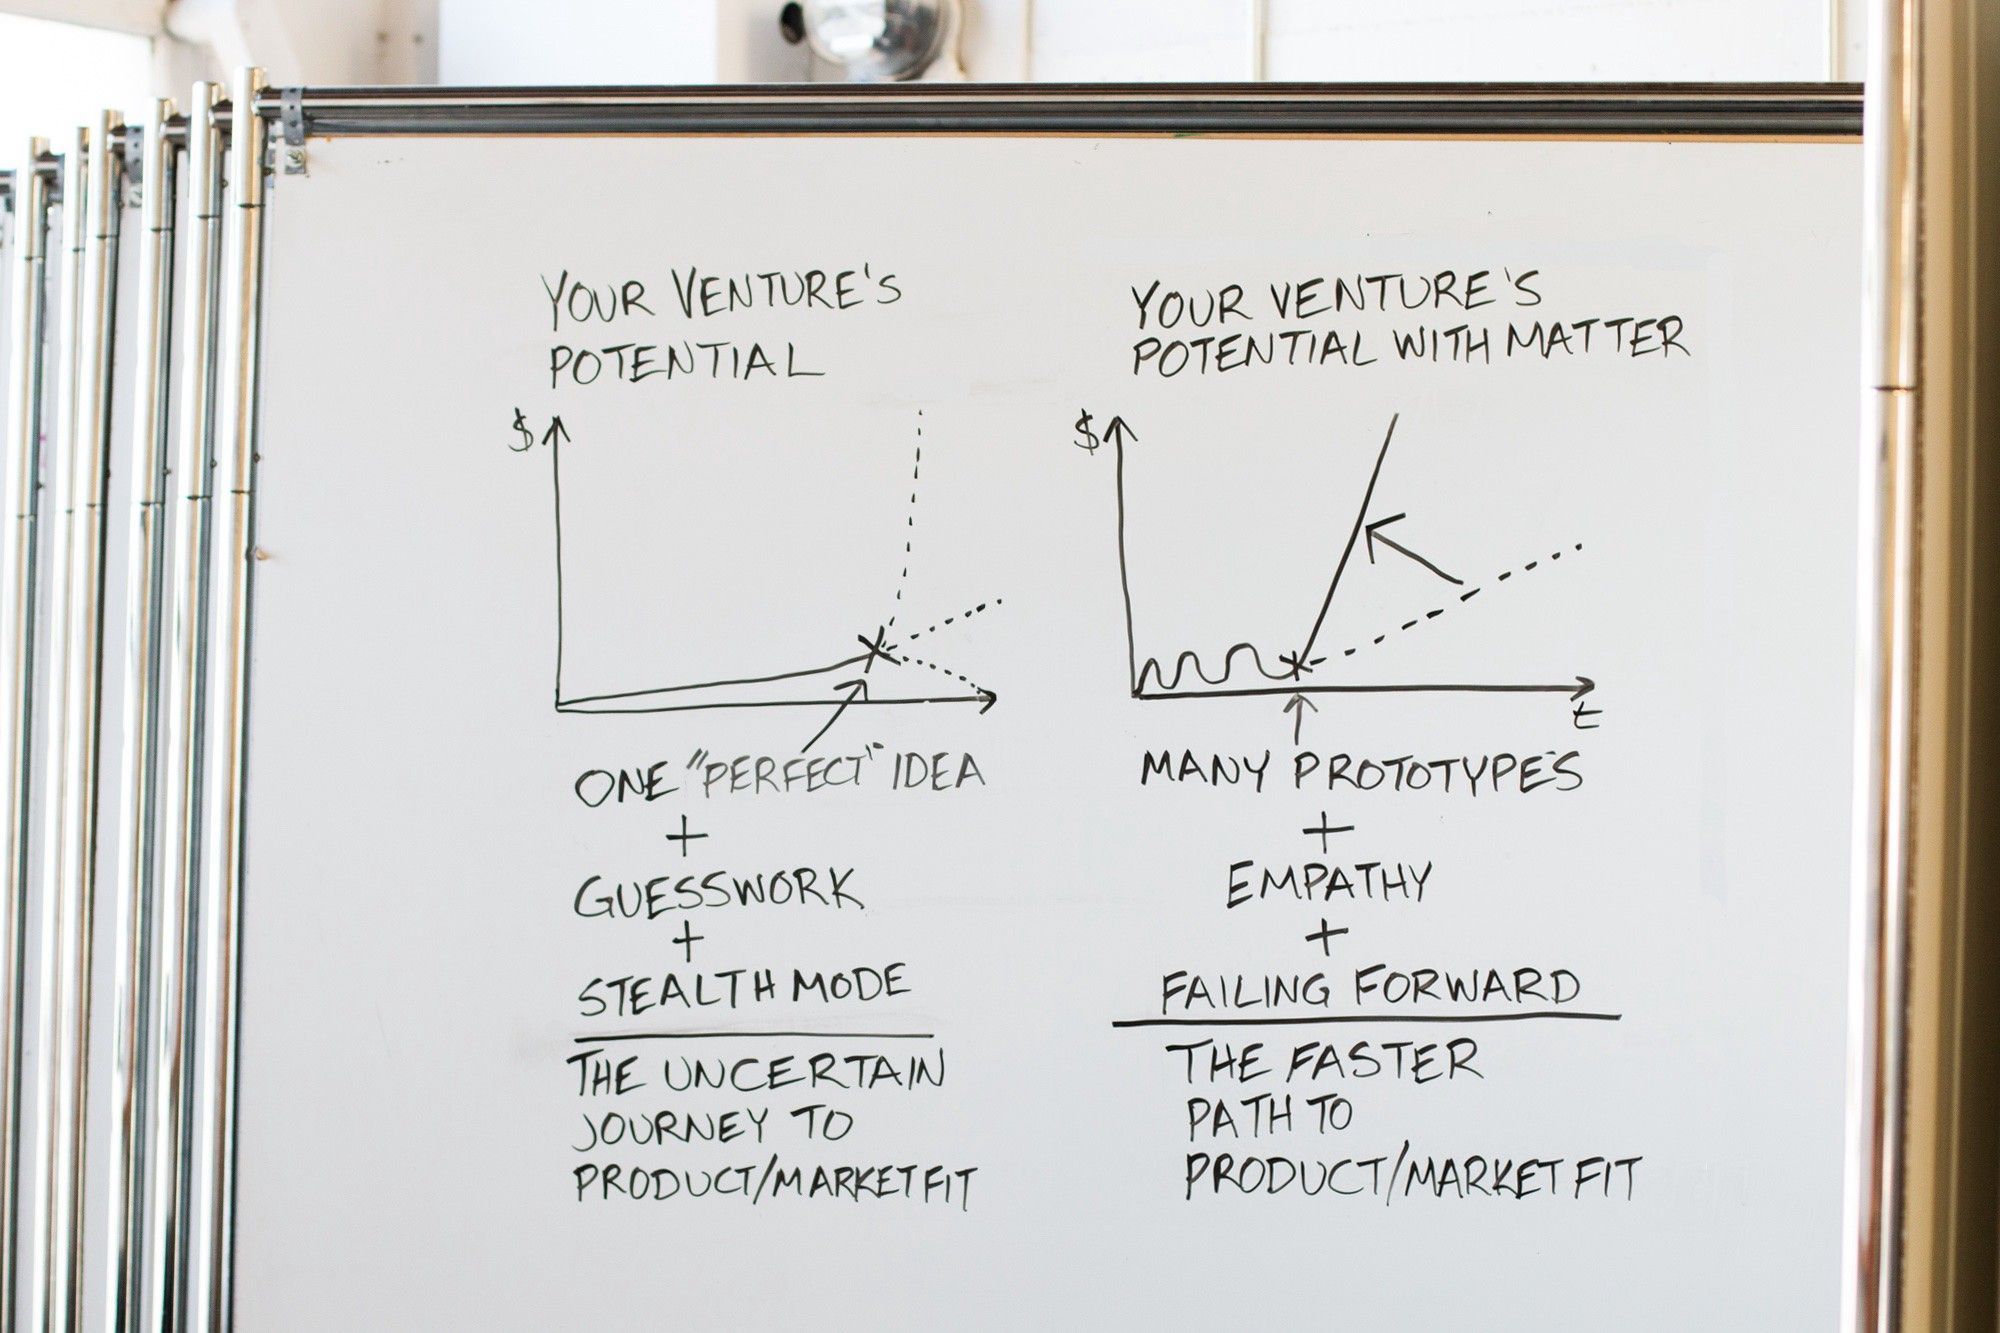 YOUR VENTURE'S
POTENTIAL
$
ONE "PERFECT" IDEA
+
GUESSWORK
+
STEALTH MODE
THE UNCERTAIN
JOURNEY TO
PRODUCT/MARKET FIT
YOUR VENTURE'S
POTENTIAL WITH MATTER
$
t
MANY PROTOTYPES
+
EMPATHY
+
FAILING FORWARD
THE FASTER
PATH TO
PRODUCT/MARKET FIT